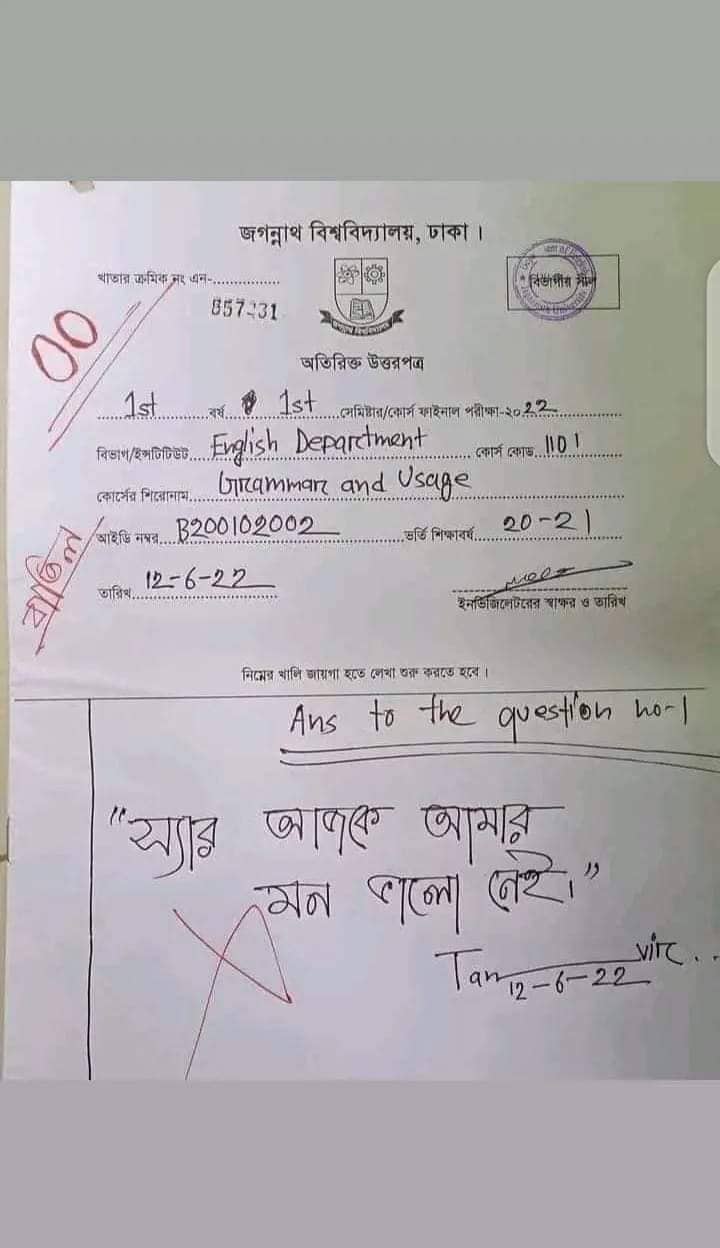 জগন্নাথ বিশ্ববিদ্যালয়, ঢাকা ।
খাতার ক্রমিক নং এন-................
বিভাগীয় সীল
857231
00
অতিরিক্ত উত্তরপত্র
1st বর্ষ 1st সেমিষ্টার/কোর্স ফাইনাল পরীক্ষা-২০22
বিভাগ/ইন্সটিটিউট English Department কোর্স কোড 1101
কোর্সের শিরোনাম Grammar and Usage
আইডি নম্বর B200102002 ভর্তি শিক্ষাবর্ষ 20-21
বাতিল
তারিখ 12-6-22
ইনভিজিলেটরের স্বাক্ষর ও তারিখ
নিম্নের খালি জায়গা হতে লেখা শুরু করতে হবে ।
Ans to the question no-1
"স্যার আজকে আমার
মন ভালো নেই।"
Tan vir..
12-6-22